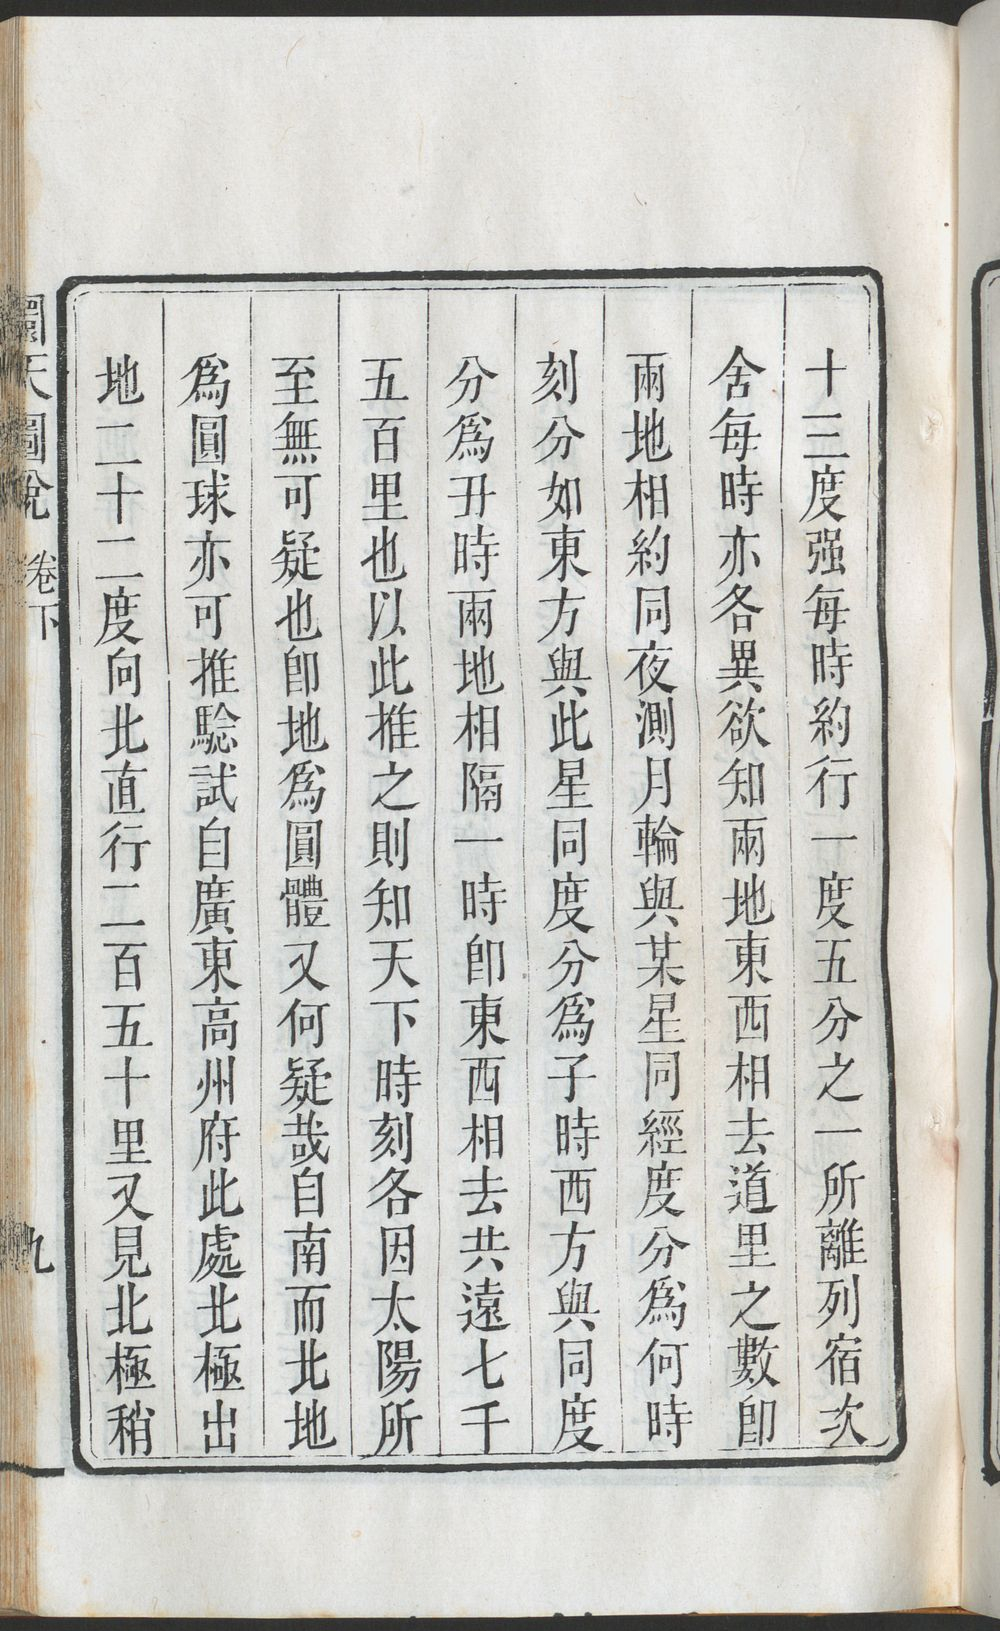 十三度强每時約行一度五分之一所離列宿次
舍每時亦各異欲知兩地東西相去道里之數卽
兩地相約同夜測月輪與某星同經度分爲何時
刻分如東方與此星同度分爲子時西方與同度
分爲丑時兩地相隔一時卽東西相去共遠七千
五百里也以此推之則知天下時刻各因太陽所
至無可疑也卽地爲圓體又何疑哉自南而北地
爲圓球亦可推騐試自廣東高州府此處北極出
地二十二度向北直行二百五十里又見北極稍
圜天圖說 卷下 九